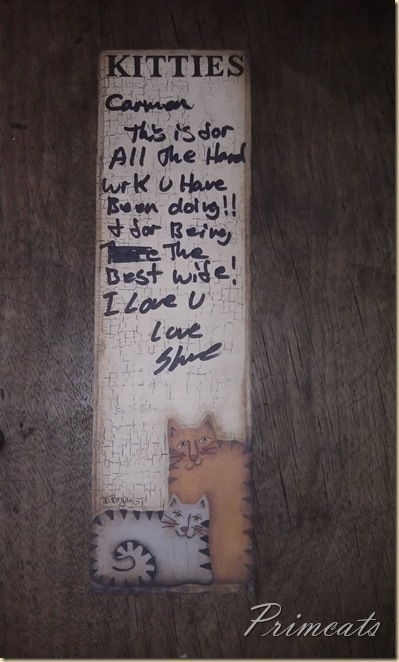 KITTIES
Carmen
This is for
All The Hard
wrk U Have
Been doing!!
& for Being
The
Best wife!
I Love U
Love
Primcats